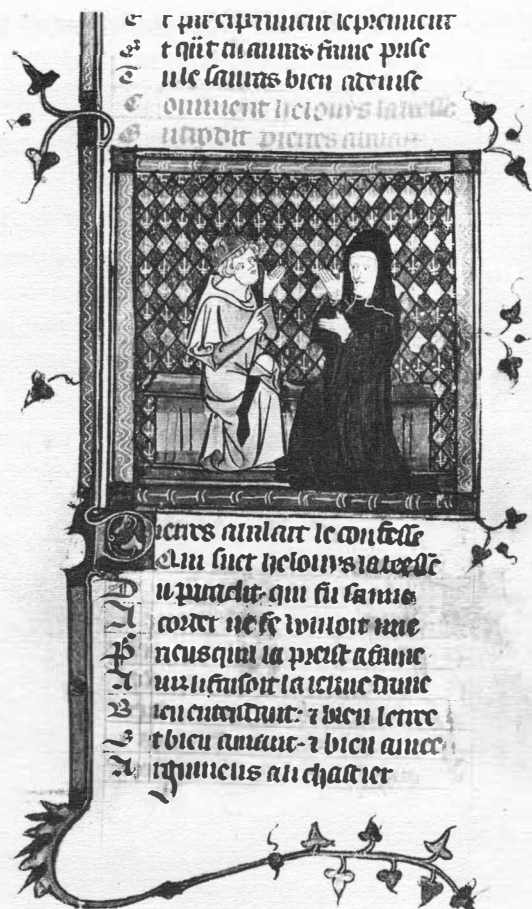 E t par experiment le preuuent
E t qñt tu auras fame prise
T u le sauras bien a deuise
C omment helouys labeesse
dit pierres abaiart
P ierres abailart le confesse
Q ui suer helouys labeesse
D u paraclit · qui fu samie
A corder ne se vouloit mie
P our riens quil la preist a fame
A ins li faisoit la ieune dame
B ien entendant : ⁊ bien letree
E t bien amant · ⁊ bien amee
A rgumens au chastier